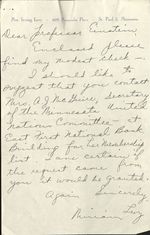 Mrs. Irving Levy - 1689 Pinehurst Place St. Paul 5, Minnesota
Dear Professor Einstein,
Enclosed please
find my modest check -
I should like to
suggest that you contact
Mrs. A. J. McGuire, secretary
of the Minnesota United
Nations Committee - at
East First National Bank
Building for her Membership
list. I am certain if
the request came from
you it would be granted.
Again Sincerely,
Miriam Levy